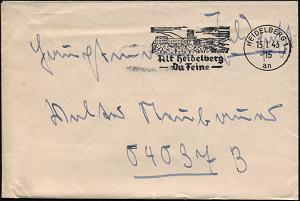 Feldpost
HEIDELBERG 1
15.1.43
15
an
Alt Heidelberg
Du Feine
Walter Neubauer
04037 B